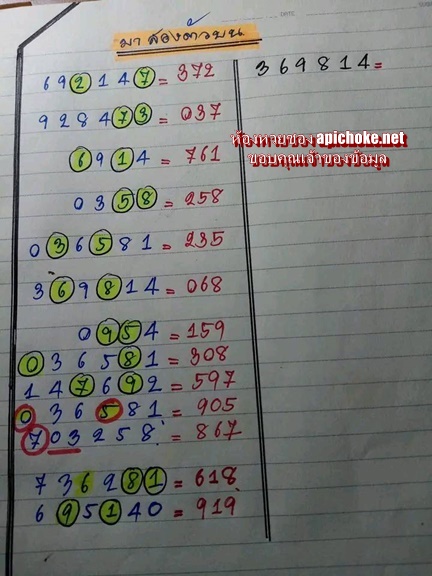 มาสองตัวบน
692147=372
928473=037
6914=761
0358=258
036581=235
369814=068
0954=159
036581=308
147692=597
036581=905
703258=867
736281=618
695140=919
369814=
ห้องหวยของ apichoke.net
ขอบคุณเจ้าของข้อมูล